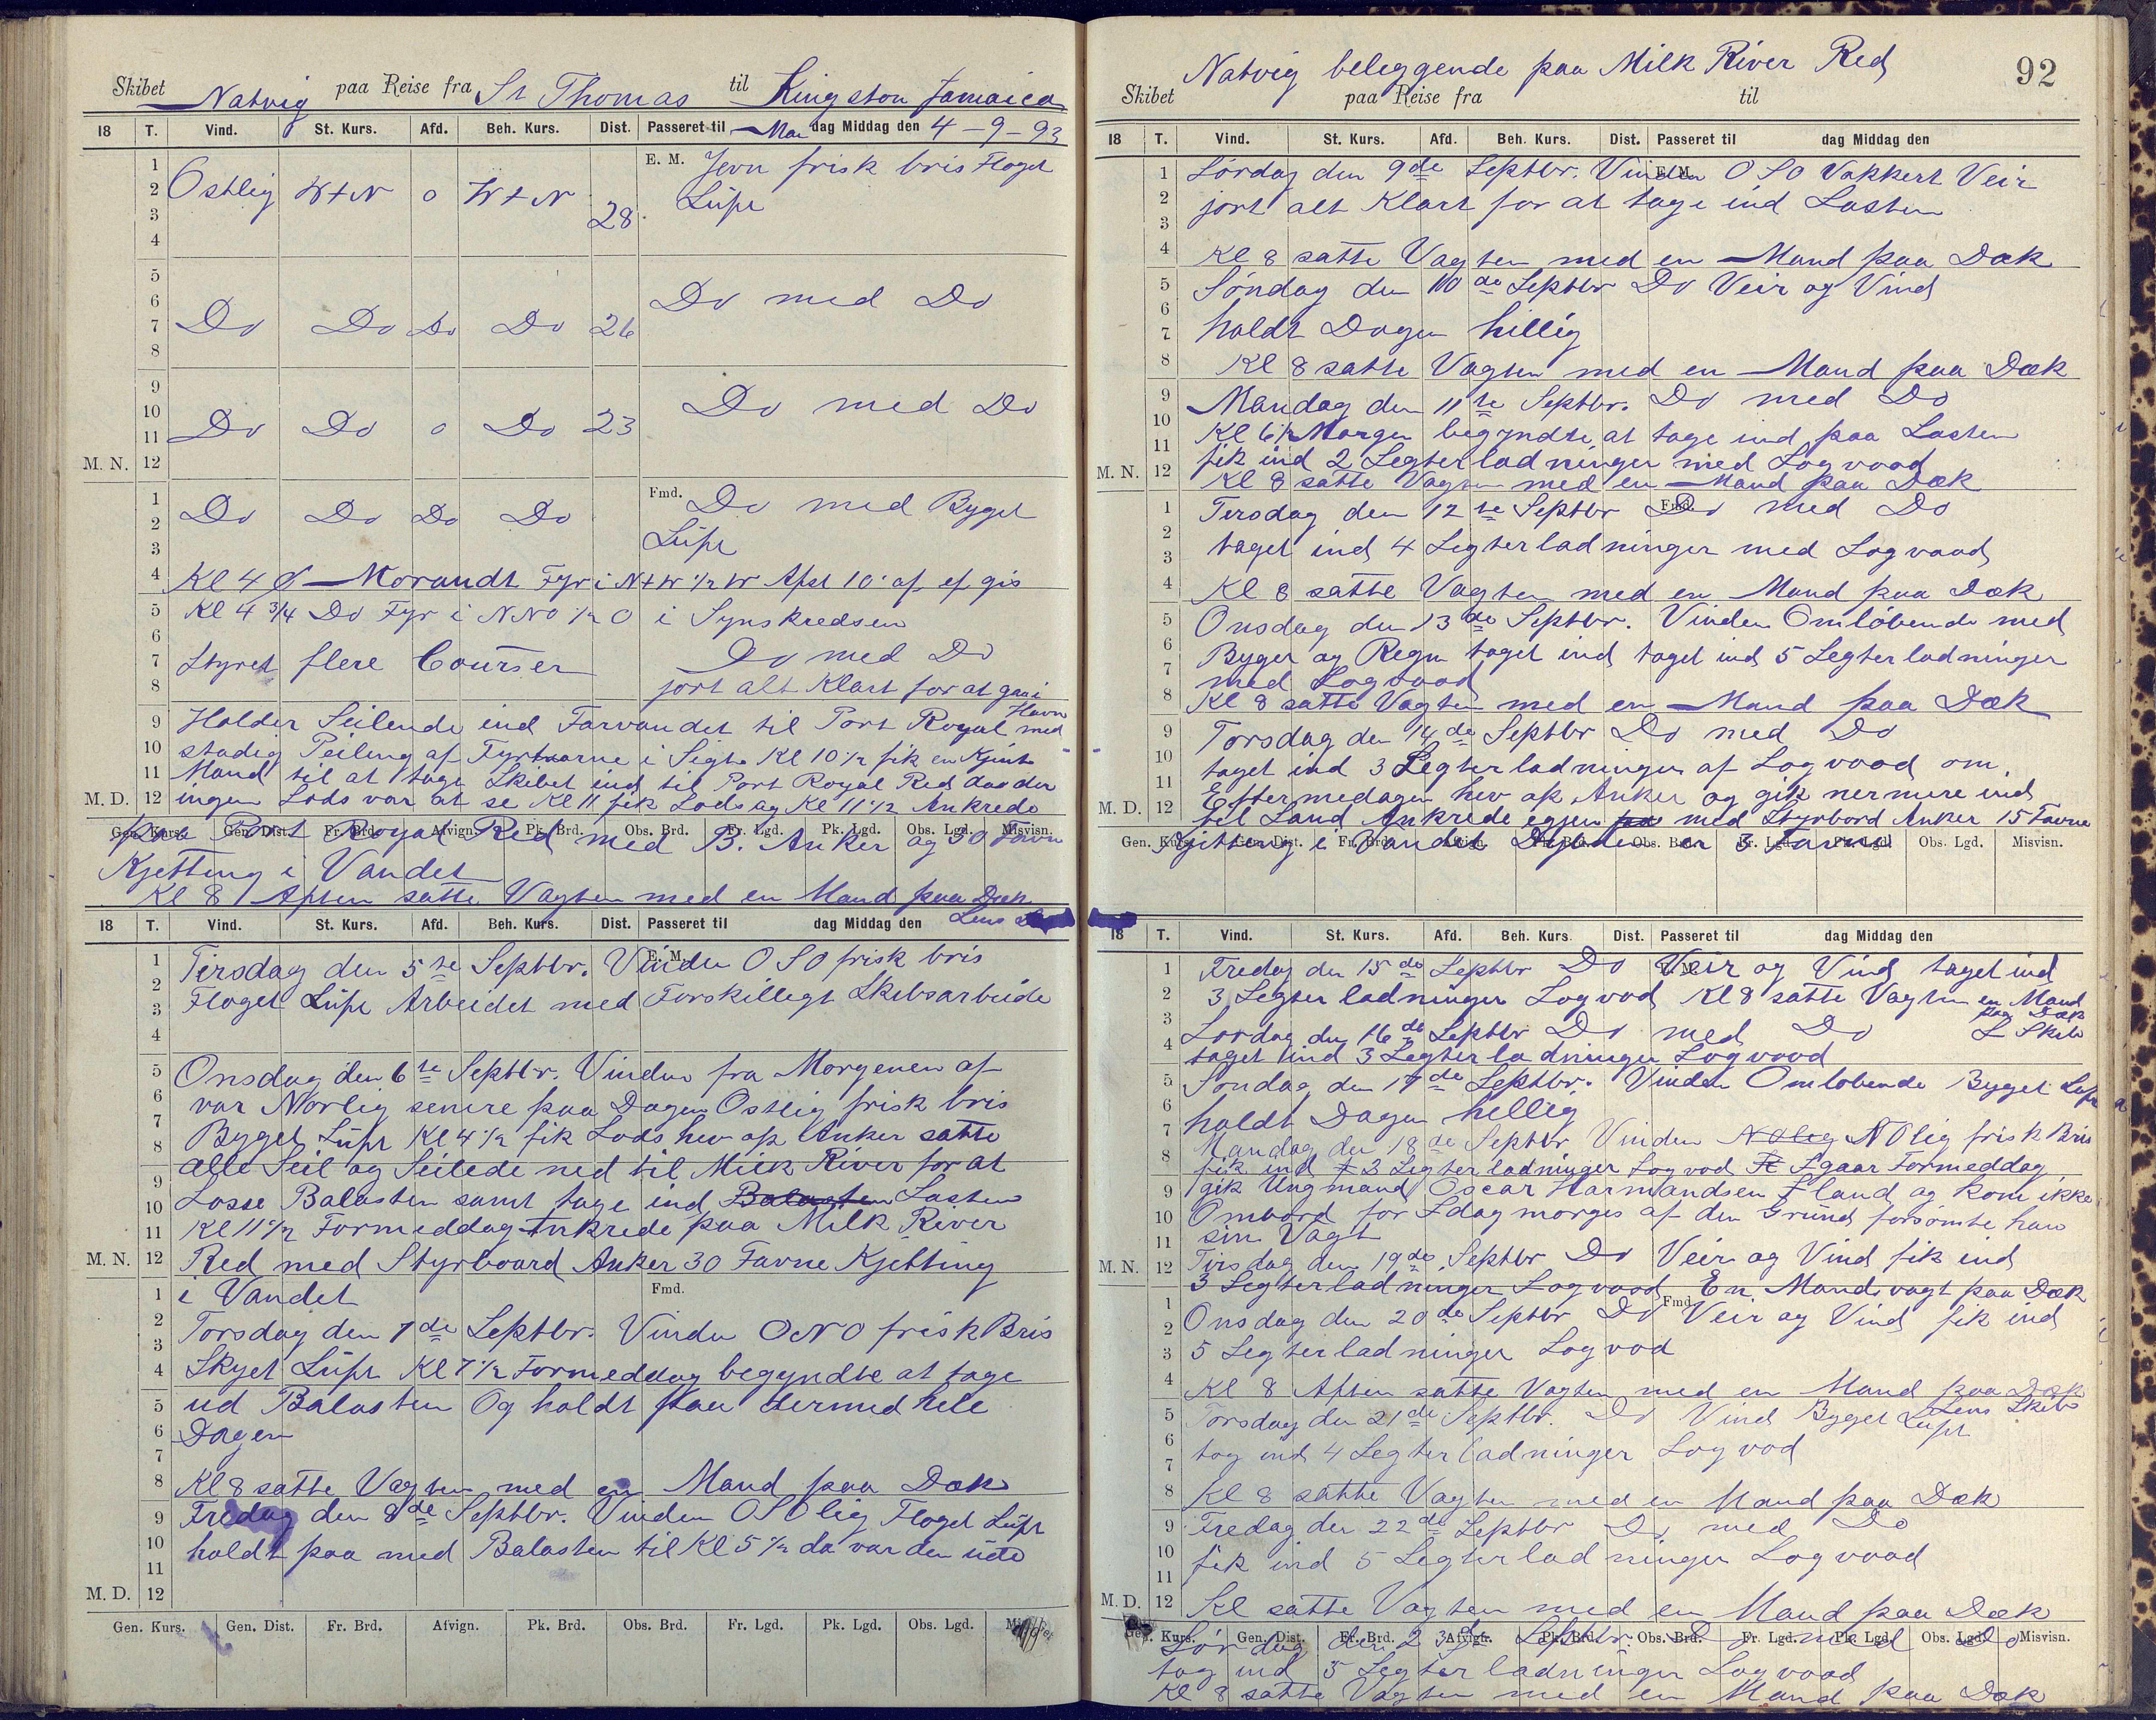 Skibet Natvig paa Reise fra St Thomas til Kingston Jamaica
18 T. Vind. St. Kurs. Afd. Beh. Kurs. Dist. Passeret til Man dag Middag den 4-9-93
1 E. M. Jevn frisk bris Flaget
2 Ostlig W t N o W t N 28 Lüft
3
4
5
6 Do med Do
7 Do Do Do Do 26
8
9
10 Do med Do
11 Do Do o Do 23
M. N. 12
1 Fmd. Do med Byget
2 Do Do Do Do
3 Lüft
4 Kl 4 Morandt Fyr i N t W 1/2 W Afst 10' af ef gis
5 Kl 4 3/4 Do Fyr i NNO 1/2 O i Synskredsen
6 Do med Do
7 Styret flere Courser
8 jort alt Klart for at gaa i Havn
9 Holder Seilende ind Farvandet til Port Royal med
10 stadig Peiling af Fyrtaarne i Sigte Kl 10 1/2 fik en Kjent
11 Mand til at tage Skibet ind til Port Royal Red daa der
M. D. 12 ingen Lods var at se Kl 11 fik Lods og Kl 11 1/2 Ankrede
Gen. Kurs. Gen. Dist. Fr. Brd. Afvign. Pk. Brd. Obs. Brd. Fr. Lgd. Pk. Lgd. Obs. Lgd. Misvisn.
paa Port Royal Red med B. Anker og 30 Favn
Kjetting i Vandet
Kl 8 Aften satte Vagten med en Mand paa Dæk
Lens
18 T. Vind. St. Kurs. Afd. Beh. Kurs. Dist. Passeret til dag Middag den
1 E. M.
Tirsdag den 5te Septbr. Vinden OSO frisk bris
2
3 Flaget Lüft Arbeidet med Forskilligt Skibsarbeide
4
5 Onsdag den 6te Septbr. Vinden fra Morgenen af
6 var Norlig senere paa Dagen Ostlig frisk bris
7
8 Byget Lüft Kl 4 1/2 fik Lods hev op Anker satte
9 alle Seil og Seilede ned til Milk River for at
10 Losse Balasten samt tage ind Balasten Lasten
11 Kl 11 1/2 Formeddag Ankrede paa Milk River
M. N. 12 Red med Styrboard Anker 30 Favne Kjetting
1 i Vandet Fmd.
2 Torsdag den 7de Septbr. Vinden ONO frisk Bris
3
4 Skyet Lüft Kl 7 1/2 Formeddag begyndte at tage
5 ud Balasten Og holdt paa dermed hele
6 Dagen
7
8 Kl 8 satte Vagten med en Mand paa Dæk
9 Fredag den 8de Septbr. Vinden OSOlig Flaget Lüft
10 holdt paa med Balasten til Kl 5 1/2 da var den ude
11
M. D. 12
Gen. Kurs. Gen. Dist. Fr. Brd. Afvign. Pk. Brd. Obs. Brd. Fr. Lgd. Pk. Lgd. Obs. Lgd.
92
Natvig beleggende paa Milk River Red
Skibet paa Reise fra til
18 T. Vind. St. Kurs. Afd. Beh. Kurs. Dist. Passeret til dag Middag den
1 Lørdag den 9de Septbr. Vinden OSO Vakkert Veir
E. M.
2 jort alt Klart for at tage ind Lasten
3
4 Kl 8 satte Vagten med en Mand paa Dæk
5 Søndag den 10de Septbr Do Veir og Vind
6
7 holdt Dagen hillig
8 Kl 8 satte Vagten med en Mand paa Dæk
9 Mandag den 11te Septbr. Do med Do
10 Kl 6 1/2 Morgen begyndte at tage ind paa Lasten
11 fik ind 2 Legterladninger med Logvood
M. N. 12 Kl 8 satte Vagten med en Mand paa Dæk
1 Tersdag den 12te Septbr Do med Do
Fmd.
2
3 taget ind 4 Legterladninger med Logvood
4 Kl 8 satte Vagten med en Mand paa Dæk
5 Onsdag den 13de Septbr. Vinden Omløbende med
6 Byger og Regn taget ind taget ind 5 Legterladninger
7 med Logvood
8 Kl 8 satte Vagten med en Mand paa Dæk
9 Torsdag den 14de Septbr Do med Do
10 taget ind 3 Legterladninger af Logvood om
11 Eftermedagen hev op Anker og gik nermere ind
M. D. 12 til Land Ankrede egjen paa med Styrbord Anker 15 Favne
Gen. Kurs. Gen. Dist. Fr. Brd. Afvign. Pk. Brd. Obs. Brd. Fr. Lgd. Pk. Lgd. Obs. Lgd. Misvisn.
Kjitting i Vandet Dybden er 3 Favne
18 T. Vind. St. Kurs. Afd. Beh. Kurs. Dist. Passeret til dag Middag den
1 Fredag den 15de Septbr Do Veir og Vind taget ind
2 3 Legterladninger Logvod Kl 8 satte Vagten en Mand
paa Dæk
3 Lordag den 16de Septbr Do med Do L Skib
4 taget ind 3 Legterladninger Logvood
5 Søndag den 17de Septbr. Vinden Omløbende Byget Luft
6 holdt Dagen hellig
7 Mandag den 18de Septbr Vinden NOlig NOlig frisk Bris
8 fik ind 3 Legterladninger Logvod Igaar Formeddag
9 gik Ungmand Oscar Harmandsen I land og kom ikke
10 Ombord for Idag morges af den Grund forsømte han
11 sin Vagt
M. N. 12 Tirsdag den 19de Septbr Do Veir og Vind fik ind
3 Legterladninger Logvood En Mandsvagt paa Dæk
1 Onsdag den 20de Septbr Do Veir og Vind fik ind
Fmd.
2
3 5 Legterladninger Logvod
4 Kl 8 Aften satte Vagten med en Mand paa Dæk
Lens Skib
5 Torsdag den 21de Septbr. Do Vind Byget Luft
6
7 tog ind 4 Legterladninger Logvod
8 Kl 8 satte Vagten med en Mand paa Dæk
9 Fredag den 22de Septbr Do med Do
10
11 fik ind 5 Legterladninger Logvood
M. D. 12 Kl satte Vagten med en Mand paa Dæk
Gen. Kurs. Gen. Dist. Fr. Brd. Afvign. Pk. Brd. Obs. Brd. Fr. Lgd. Pk. Lgd. Obs. Lgd. Misvisn.
Lørdag den 23de Septbr. Do med Do
tog ind 5 Legterladninger Logvood
Kl 8 satte Vagten med en Mand paa Dæk